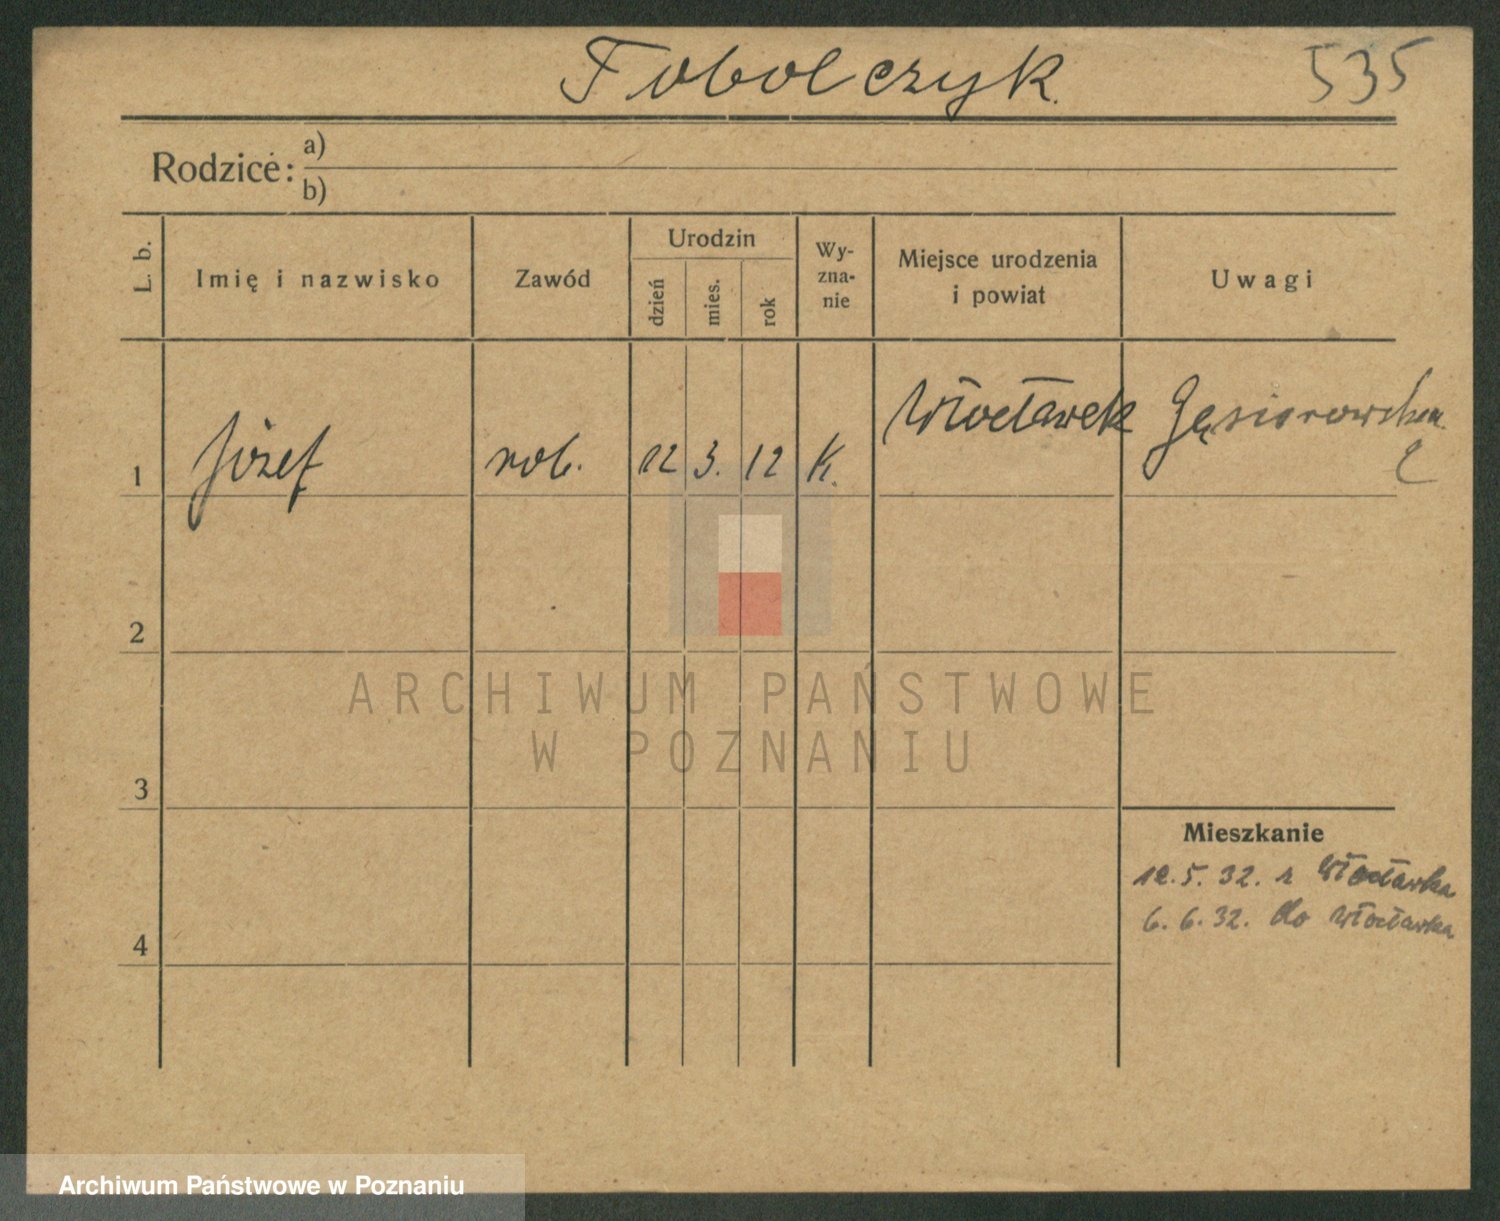 Tobolczyk 535
Rodzice: a)
b)
L. b. Imię i nazwisko Zawód Urodzin dzień mies. rok Wy-zna-nie Miejsce urodzenia i powiat Uwagi
1 Józef rob. 12 3. 12 K. Włocławek Gąsiorowskich
2
3
4
Mieszkanie
12. 5. 32. z Włocławka
6. 6. 32. do Włocławka
ARCHIWUM PAŃSTWOWE
W POZNANIU
Archiwum Państwowe w Poznaniu